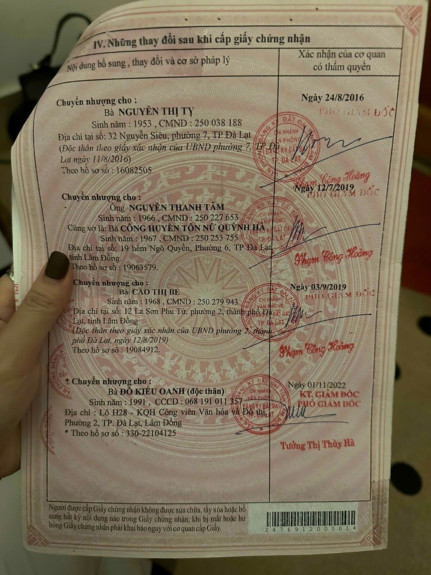 IV. Những thay đổi sau khi cấp giấy chứng nhận
Nội dung bổ sung, thay đổi và cơ sở pháp lý
Xác nhận của cơ quan
có thẩm quyền
Chuyển nhượng cho :
Bà NGUYỄN THỊ TỴ
Sinh năm : 1953 , CMND : 250 038 188
Địa chỉ tại số: 32 Nguyễn Siêu, phường 7, TP Đà Lạt
(Độc thân theo giấy xác nhận của UBND phường 7, TP Đà
Lạt ngày 11/8/2016)
Theo hồ sơ số : 16082505
Ngày 24/8/2016
PHÓ GIÁM ĐỐC
Phạm Công Hoàng
Chuyển nhượng cho :
Ông NGUYỄN THANH TÂM
Sinh năm : 1966 , CMND : 250 227 653
Cùng vợ là: Bà CÔNG HUYỀN TÔN NỮ QUỲNH HÀ
Sinh năm : 1967 , CMND : 250 253 755
Địa chỉ tại số: 19 hẻm Ngô Quyền, Phường 6, TP Đà Lạt
tỉnh Lâm Đồng
Theo hồ sơ số: 19063579.
Ngày 12/7/2019
PHÓ GIÁM ĐỐC
Phạm Công Hoàng
Chuyển nhượng cho :
Bà CAO THỊ BÉ
Sinh năm : 1968 , CMND : 250 279 943
Địa chỉ tại số: 12 La Sơn Phu Tử, phường 2, thành phố Đà
Lạt, tỉnh Lâm Đồng
(Độc thân theo giấy xác nhận của UBND phường 2, thành
phố Đà Lạt, ngày 12/8/2019)
Theo hồ sơ số: 19084912.
Ngày 03/9/2019
PHÓ GIÁM ĐỐC
Phạm Công Hoàng
* Chuyển nhượng cho :
Bà ĐỖ KIỀU OANH (độc thân)
Sinh năm :1991 , CCCD : 068 191 011 357
Địa chỉ : Lô H28 – KQH Công viên Văn hóa và Đô thị,
Phường 2, TP Đà Lạt, Lâm Đồng
* Theo hồ sơ số : 330-22104125
Ngày 01/11/2022
KT. GIÁM ĐỐC
PHÓ GIÁM ĐỐC
Tưởng Thị Thùy Hà
Người được cấp Giấy chứng nhận không được sửa chữa, tẩy xóa hoặc bổ
sung bất kỳ nội dung nào trong Giấy chứng nhận; khi bị mất hoặc hư
hỏng Giấy chứng nhận phải khai báo ngay với cơ quan cấp Giấy.